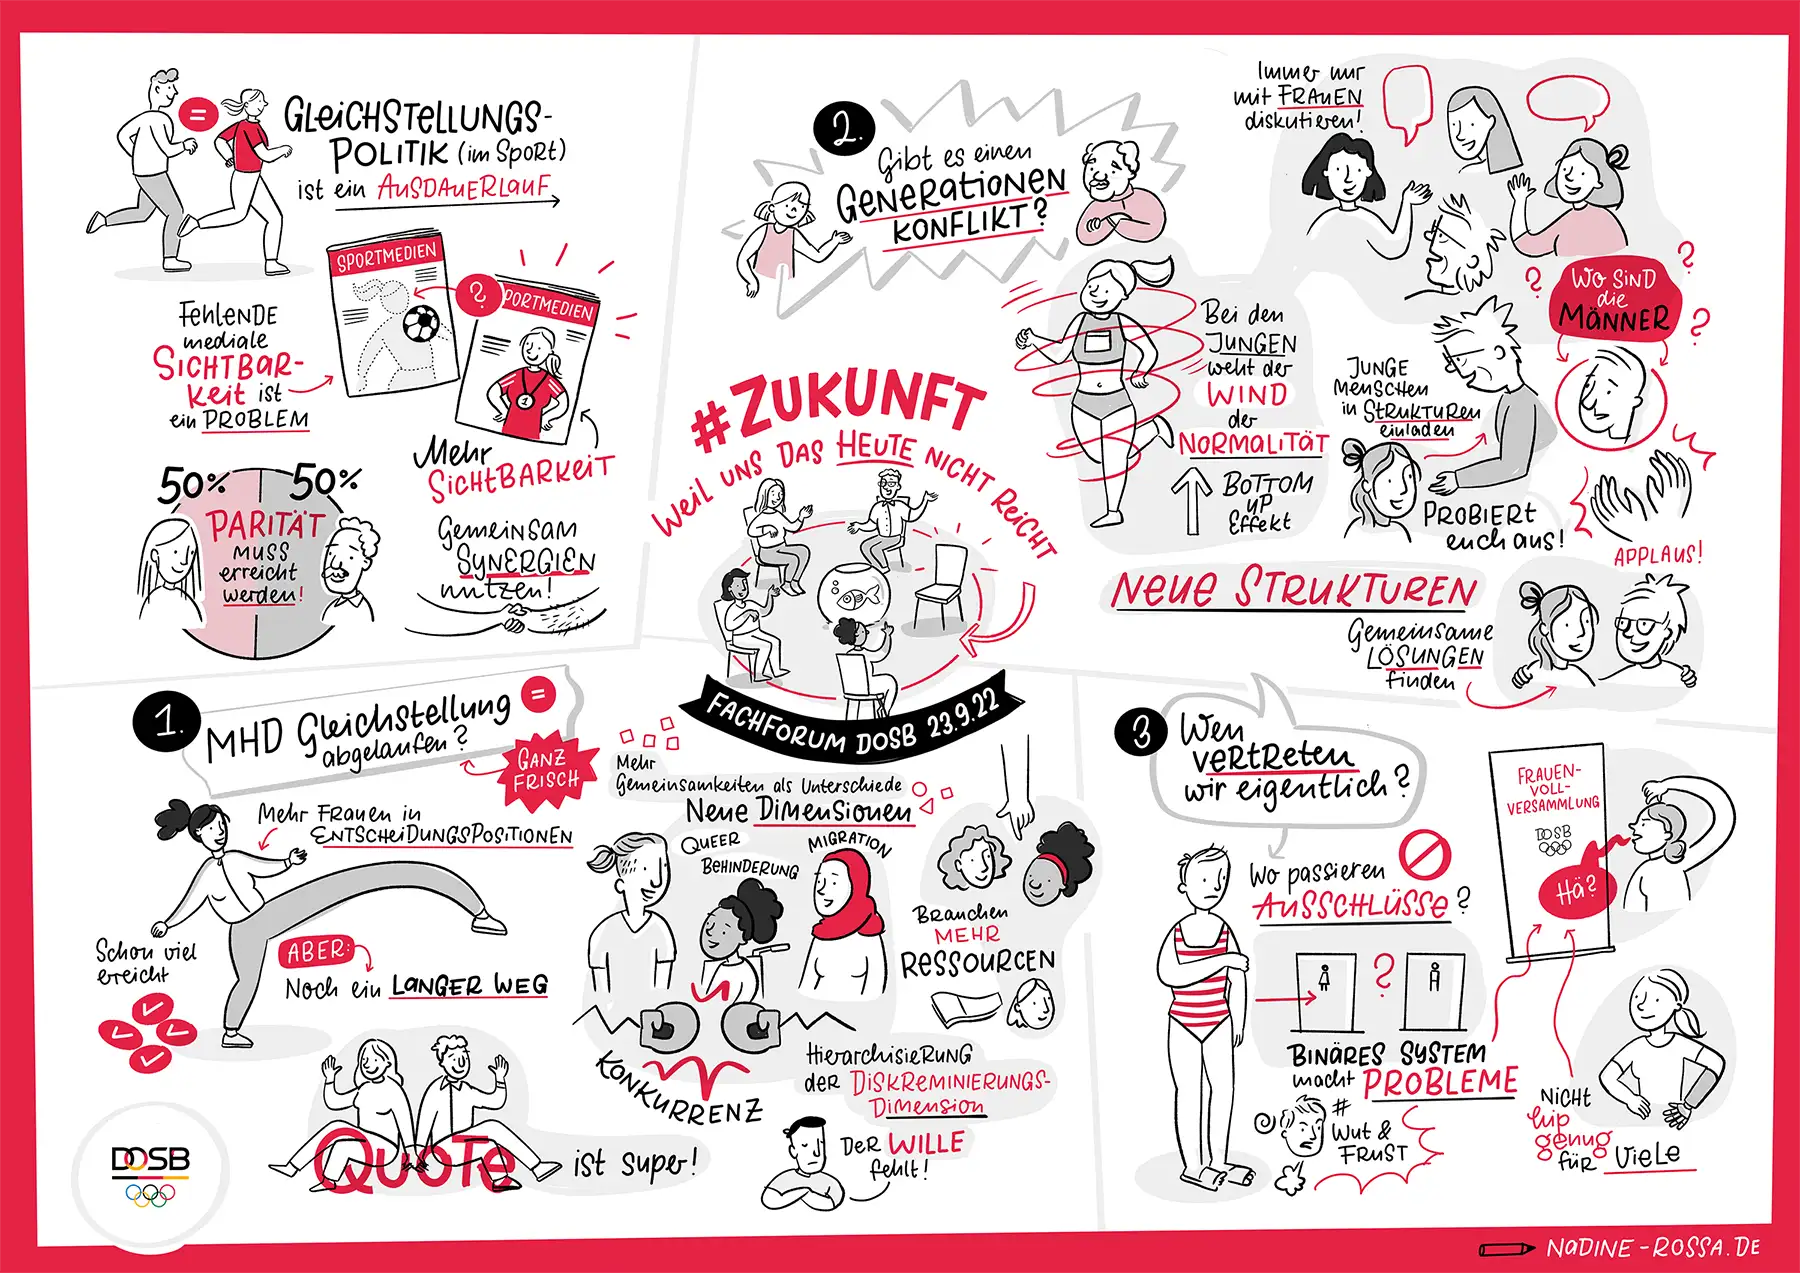 =
GLEICHSTELLUNGS-
POLITIK (im SPORT)
ist ein AUSDAUERLAUF
SPORTMEDIEN
?
PORTMEDIEN
FEHLENDE
mediale
SICHTBAR-
KEIT ist
ein PROBLEM
Mehr
SICHTBARKEIT
50% 50%
PARITÄT
MUSS
erreicht
werden!
Gemeinsam
SYNERGIEN
nutzen!
#ZUKUNFT
WEIL UNS DAS HEUTE NICHT REICHT
FACHFORUM DOSB 23.9.22
2.
Gibt es einen
GENERATIONEN
KONFLIKT?
Immer nur
mit FRAUEN
diskutieren!
? ? ? ?
WO SIND
die
MÄNNER
Bei den
JUNGEN
weht der
WIND
der
NORMALITÄT
BOTTOM
UP
Effekt
JUNGE
MENSCHEN
in STRUKTUREN
einladen
PROBIERT
euch aus!
APPLAUS!
NEUE STRUKTUREN
Gemeinsame
LÖSUNGEN
finden
1.
MHD Gleichstellung
abgelaufen?
=
GANZ
FRISCH
Mehr Frauen in
ENTSCHEIDUNGSPOSITIONEN
Schon viel
erreicht
ABER:
Noch ein LANGER WEG
QUOTE ist super!
Mehr
Gemeinsamkeiten als Unterschiede
Neue DIMENSIONEN
QUEER
BEHINDERUNG
MIGRATION
KONKURRENZ
Brauchen
MEHR
RESSOURCEN
HIERARCHISIERUNG
DER DISKREMINIERUNGS-
DIMENSION
DER WILLE
fehlt!
3
Wen
VERTRETEN
wir eigentlich?
Wo passieren
AUSSCHLÜSSE?
?
BINÄRES SYSTEM
macht PROBLEME
#
WUT &
FRUST
FRAUEN-
VOLL-
VERSAMMLUNG
DOSB
Hä?
NICHT
hip
genug
für VIELE
DOSB
NADINE-ROSSA.DE